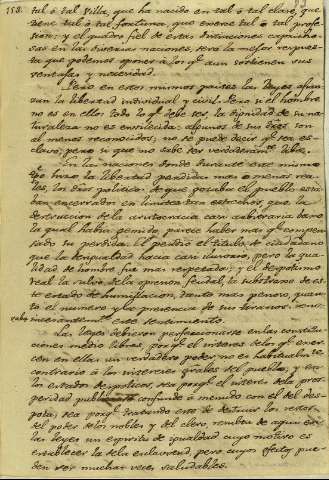 158.
tal ó tal Villa, que ha nacido en tal ó tal clase, que
tiene tal ó tal fortuna, que exerce tal ó tal profe-
sion: y el quadro fiel de estas distinciones capricho-
sas en las diversas naciones, será la mejor respues-
ta que podemos oponer á los qe. aun sostienen sus
ventajas y necesidad.
Pero en estos mismos paises las leyes afian-
zan la libertad individual y civil. Pero si el hombre
no es en ellos todo lo qe. debe ser, la dignidad de su na-
turaleza no es envilecida: algunos de sus dros. son
al menos reconocidos; no se puede decir qe. sea es-
clavo, pero si que no sabe ser verdaderamte. libre.
En las naciones donde durante este mismo
tpo. hubo la libertad perdidas mas ó menos rea-
les, los dros. politicos de que gozaba el pueblo esta-
ban encerrados en limites tan estrechos, que la
destruccion de la aristocracia casi arbitraria baxo
la qual habia gemido, parece haber mas qe. compen-
sado su perdida. El perdió el titulo de ciudadano
que la desigualdad hacia ilusorio, pero la qua-
lidad de hombre fue mas respetada; y el despotismo
real lo salvó de la opresion feudal, lo substraxo de es-
te estado de humillacion, tanto mas penoso, quan-
to el numero y la presencia de sus tiranos renu-
evan incesantemte. este sentimiento.
Las leyes debieron perfeccionarse en las constitu-
ciones medio libres, porqe. el interes de los qe. exer-
cen en ellas un verdadero poder, no es habitualmte.
contrario á los intereses grales. del pueblo; y en
los estados despoticos, sea porqe. el interes de la pros-
peridad publica se confunde á menudo con el del des-
pota, sea porqe. tratando este de destruir los restos
del poder de los nobles y del clero, resulta de aqui en
las leyes un espiritu de igualdad cuyo motivo es
establecer la de la esclavitud, pero cuyos efectos pue-
den ser muchas veces saludables.